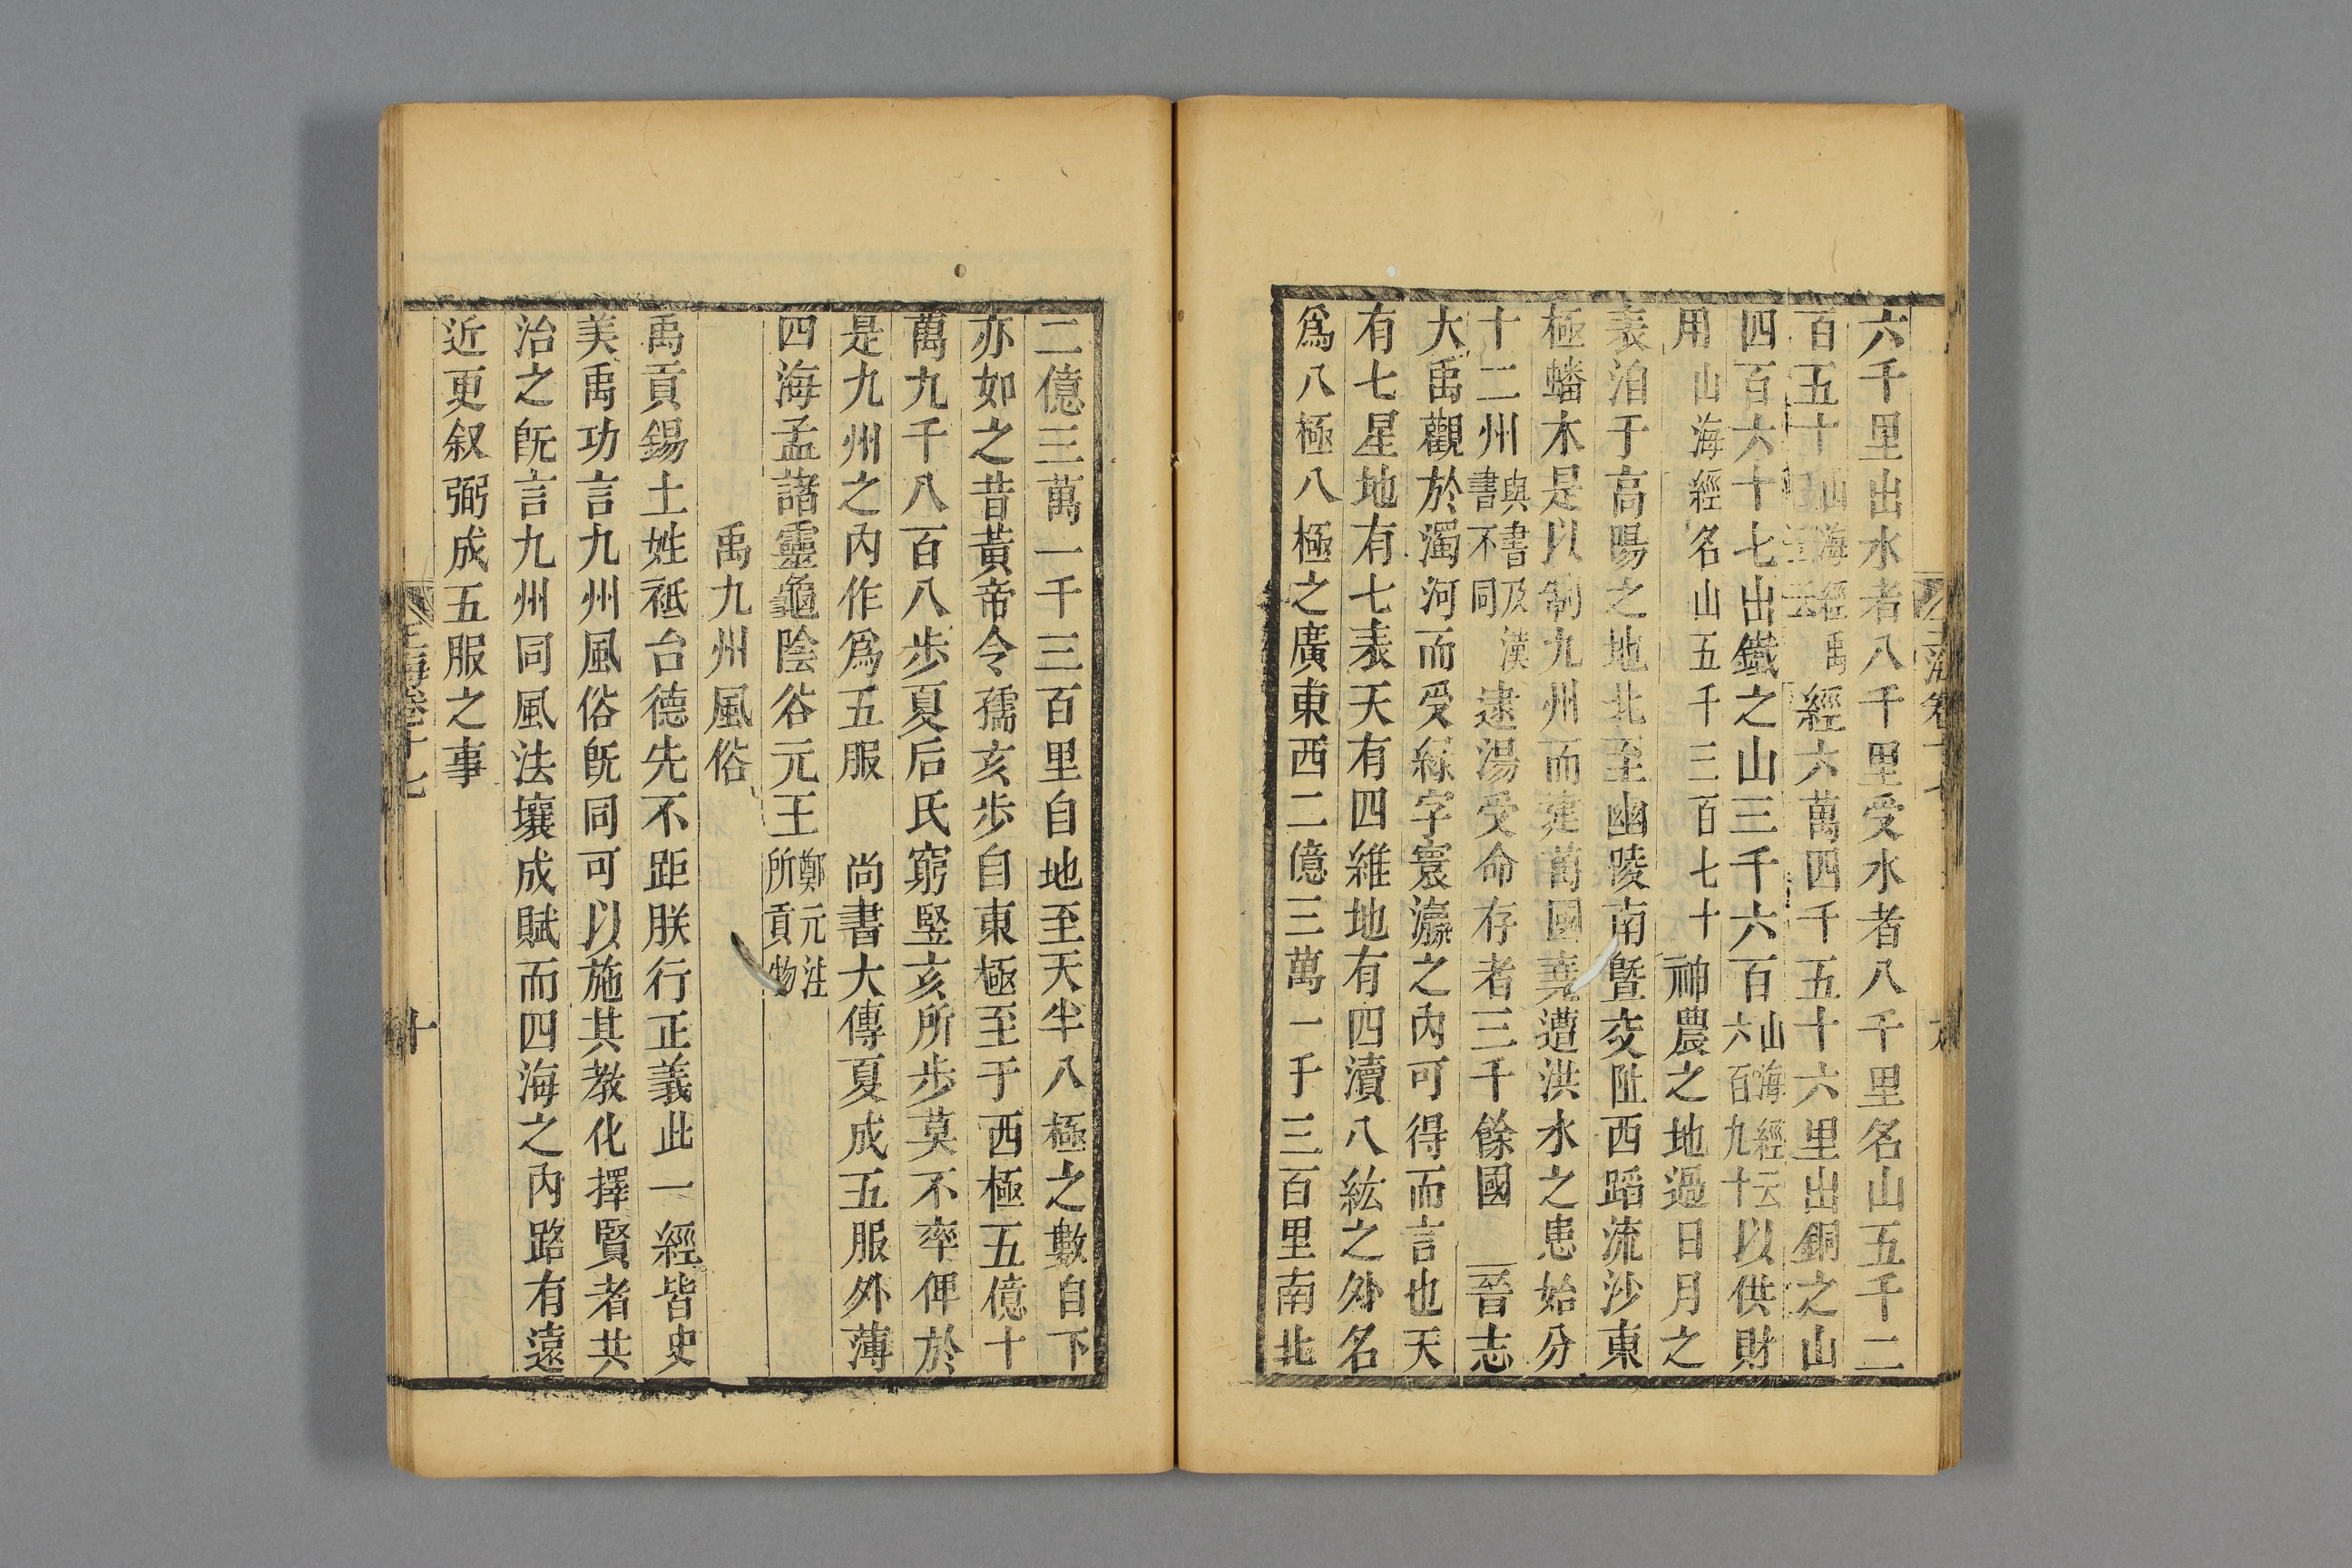 六千里出水者八千里受水者八千里名山五千二
百五十山海經禹經六萬四千五十六里出銅之山
四百六十七出鐵之山三千六百山海經云六百九十以供財
用山海經名山五千三百七十神農之地過日月之
表洎于高陽之地北至幽陵南曁交阯西蹈流沙東
極蟠木是以制九州而建萬國堯遭洪水之患始分
十二州與書及漢書不同逮湯受命存者三千餘國晉志
大禹觀於濁河而受綠字寰瀛之內可得而言也天
有七星地有七表天有四維地有四瀆八紘之外名
爲八極八極之廣東西二億三萬一千三百里南北
二億三萬一千三百里自地至天半八極之數自下
亦如之昔黃帝令孺亥步自東極至于西極五億十
萬九千八百八步夏后氏窮竪亥所步莫不率俾於
是九州之內作爲五服 尚書大傳夏成五服外薄
四海孟諸靈龜陰谷元王鄭元注所貢物
禹九州風俗
禹貢錫土姓祗台德先不距朕行正義此一經皆史
美禹功言九州風俗旣同可以施其教化擇賢者共
治之旣言九州同風法壤成賦而四海之內路有遠
近更叙弼成五服之事
玉海卷十七
十